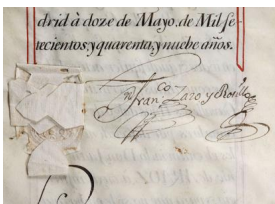 drid à doze de Mayo, de Mil se-
tecientos, y quarenta, y nuebe años.
Franco Zazo y Rosillo